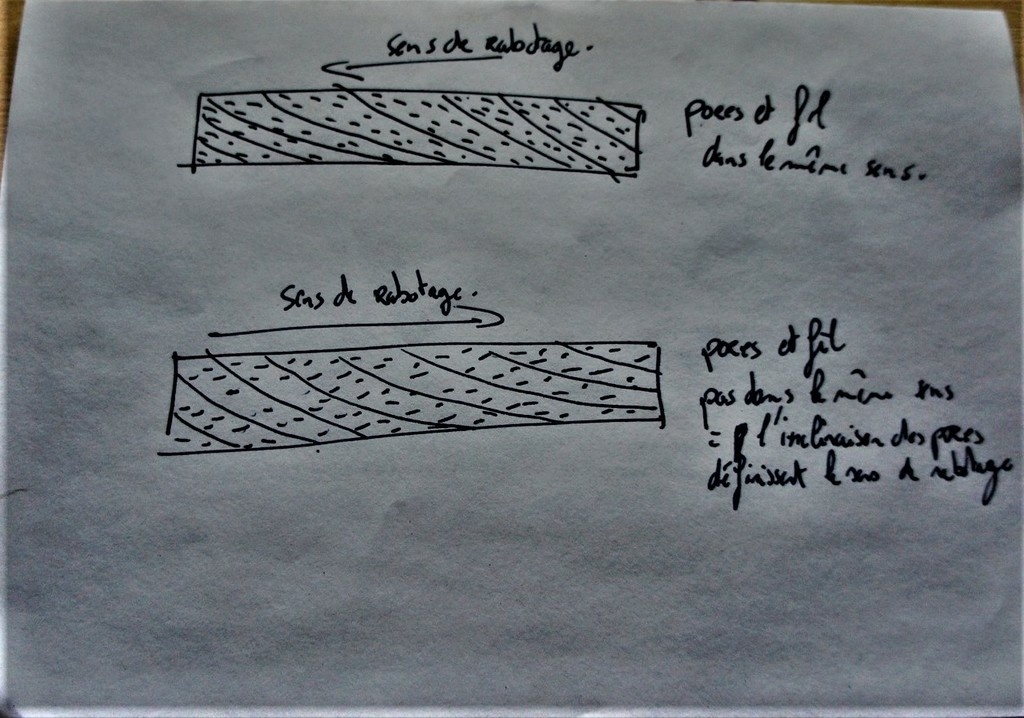 sens de rabotage.
pores et fil
dans le même sens.
sens de rabotage.
pores et fil
pas dans le même sens
= l'inclinaison des pores
définissent le sens de rabotage